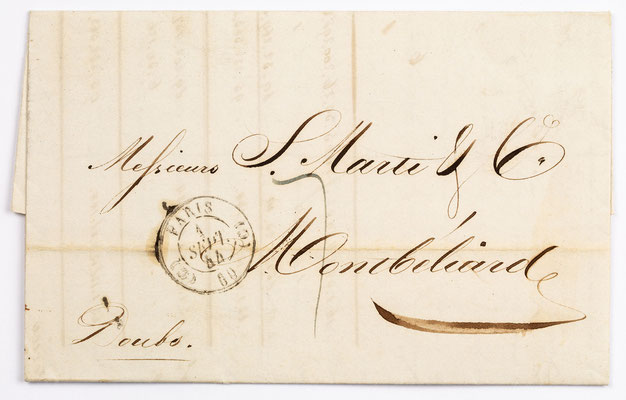 Messieurs S. Marti & Co.
7
PARIS
4
SEPT.
44
(60)
Montbéliard
Doubs.